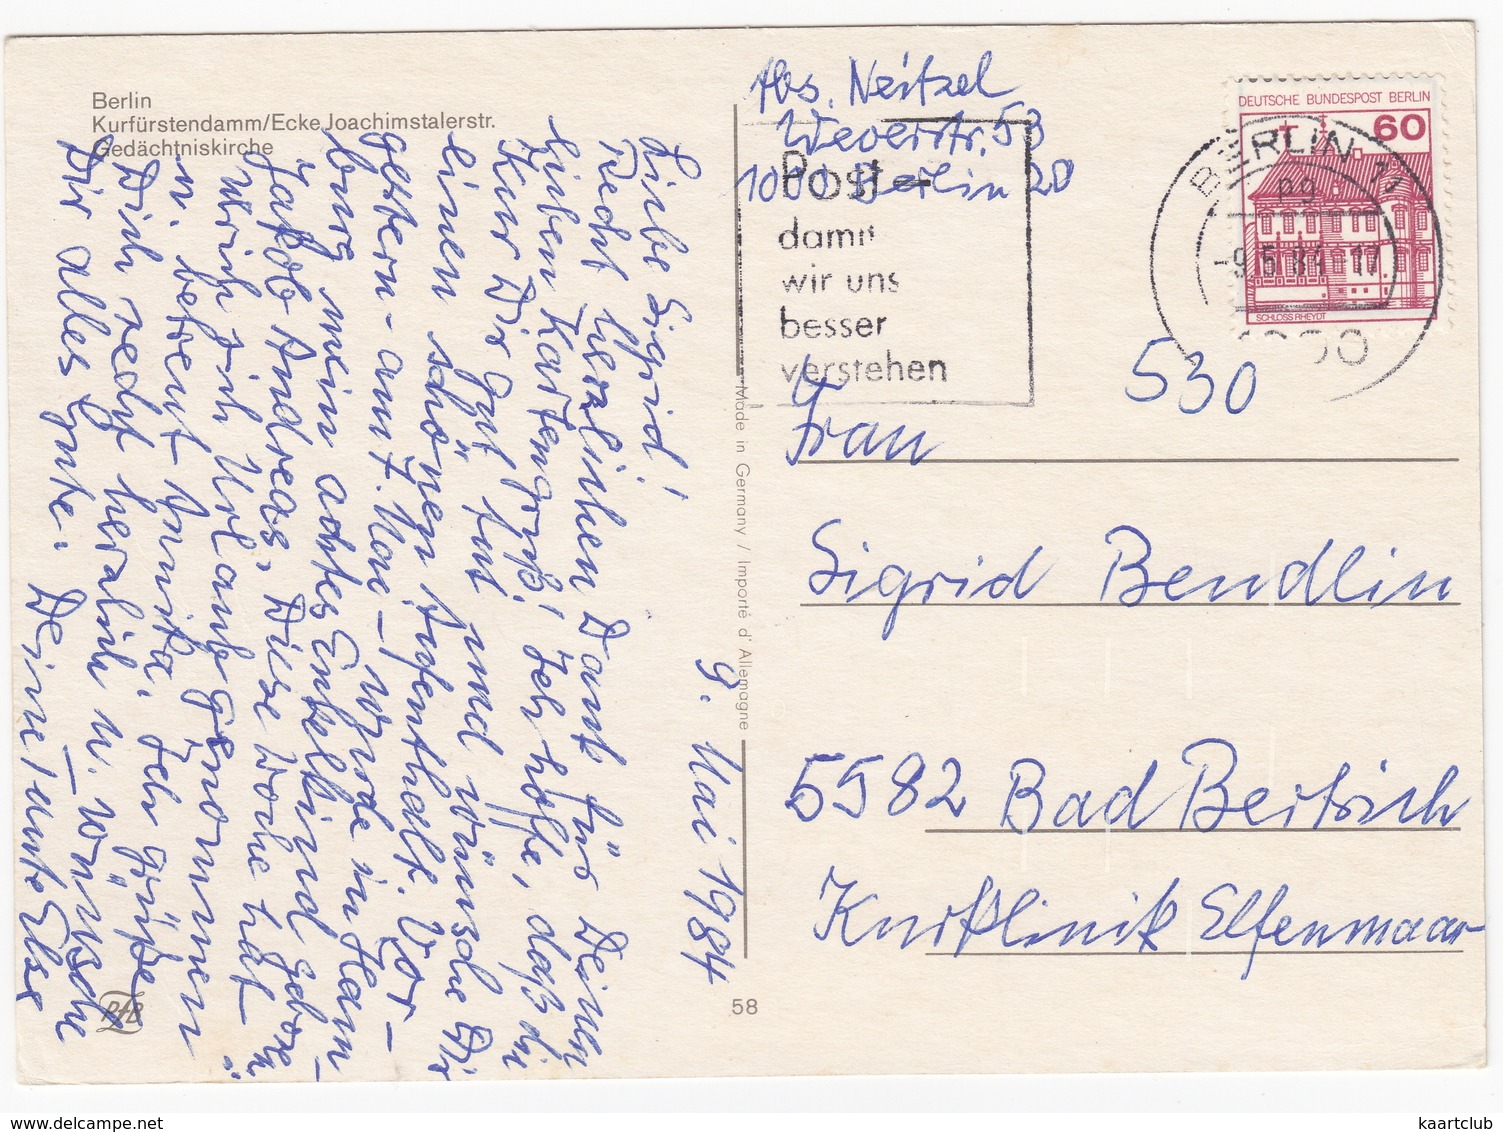 Berlin
Kurfürstendamm/Ecke Joachimstalerstr.
Gedächtniskirche
9. Mai 1984
Liebe Sigrid!
Recht herzlichen Dank für Deinen
lieben Kartengruß! Ich hoffe, daß die
Kur Dir gut tut und wünsche Dir
einen schönen Aufenthalt. Vor-
gestern - am 7. Mai - wurde in Ham-
burg mein achtes Enkelkind gebore
Jakob Andreas. Diese Woche hat
Ulrich sich Urlaub genommen
u. betreut Annika. Ich grüße
Dich recht herzlich u. wünsche
Dir alles Gute. Deine Tante Else
PFB
58
Made in Germany / Importé d'Allemagne
Abs. Neitzel
Weverstr. 53
1000 Berlin 20
Post -
damit
wir uns
besser
verstehen
DEUTSCHE BUNDESPOST BERLIN
60
SCHLOSS RHEYDT
BERLIN 11
-9.5.84-17
530
Frau
Sigrid Bendlin
5582 Bad Bertrich
Kurklinik Elfenmaar
kaartclub